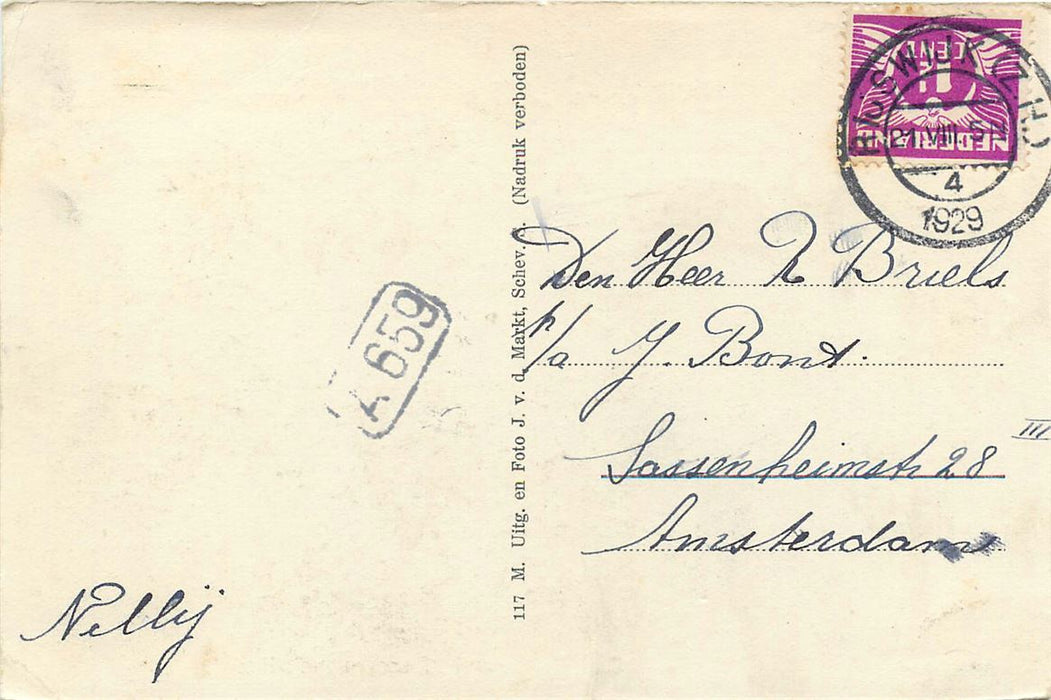 NEDERLAND
1½
CENT
RIJSWIJK (Z.H.)
21.VIII. 5N
4
1929
117 M. Uitg. en Foto J. v. d. Markt, Schev. (Nadruk verboden)
A 659
Den Heer Briels
p/a J. Bont.
III
Sassenheimstr 28
Amsterdam
Nellij